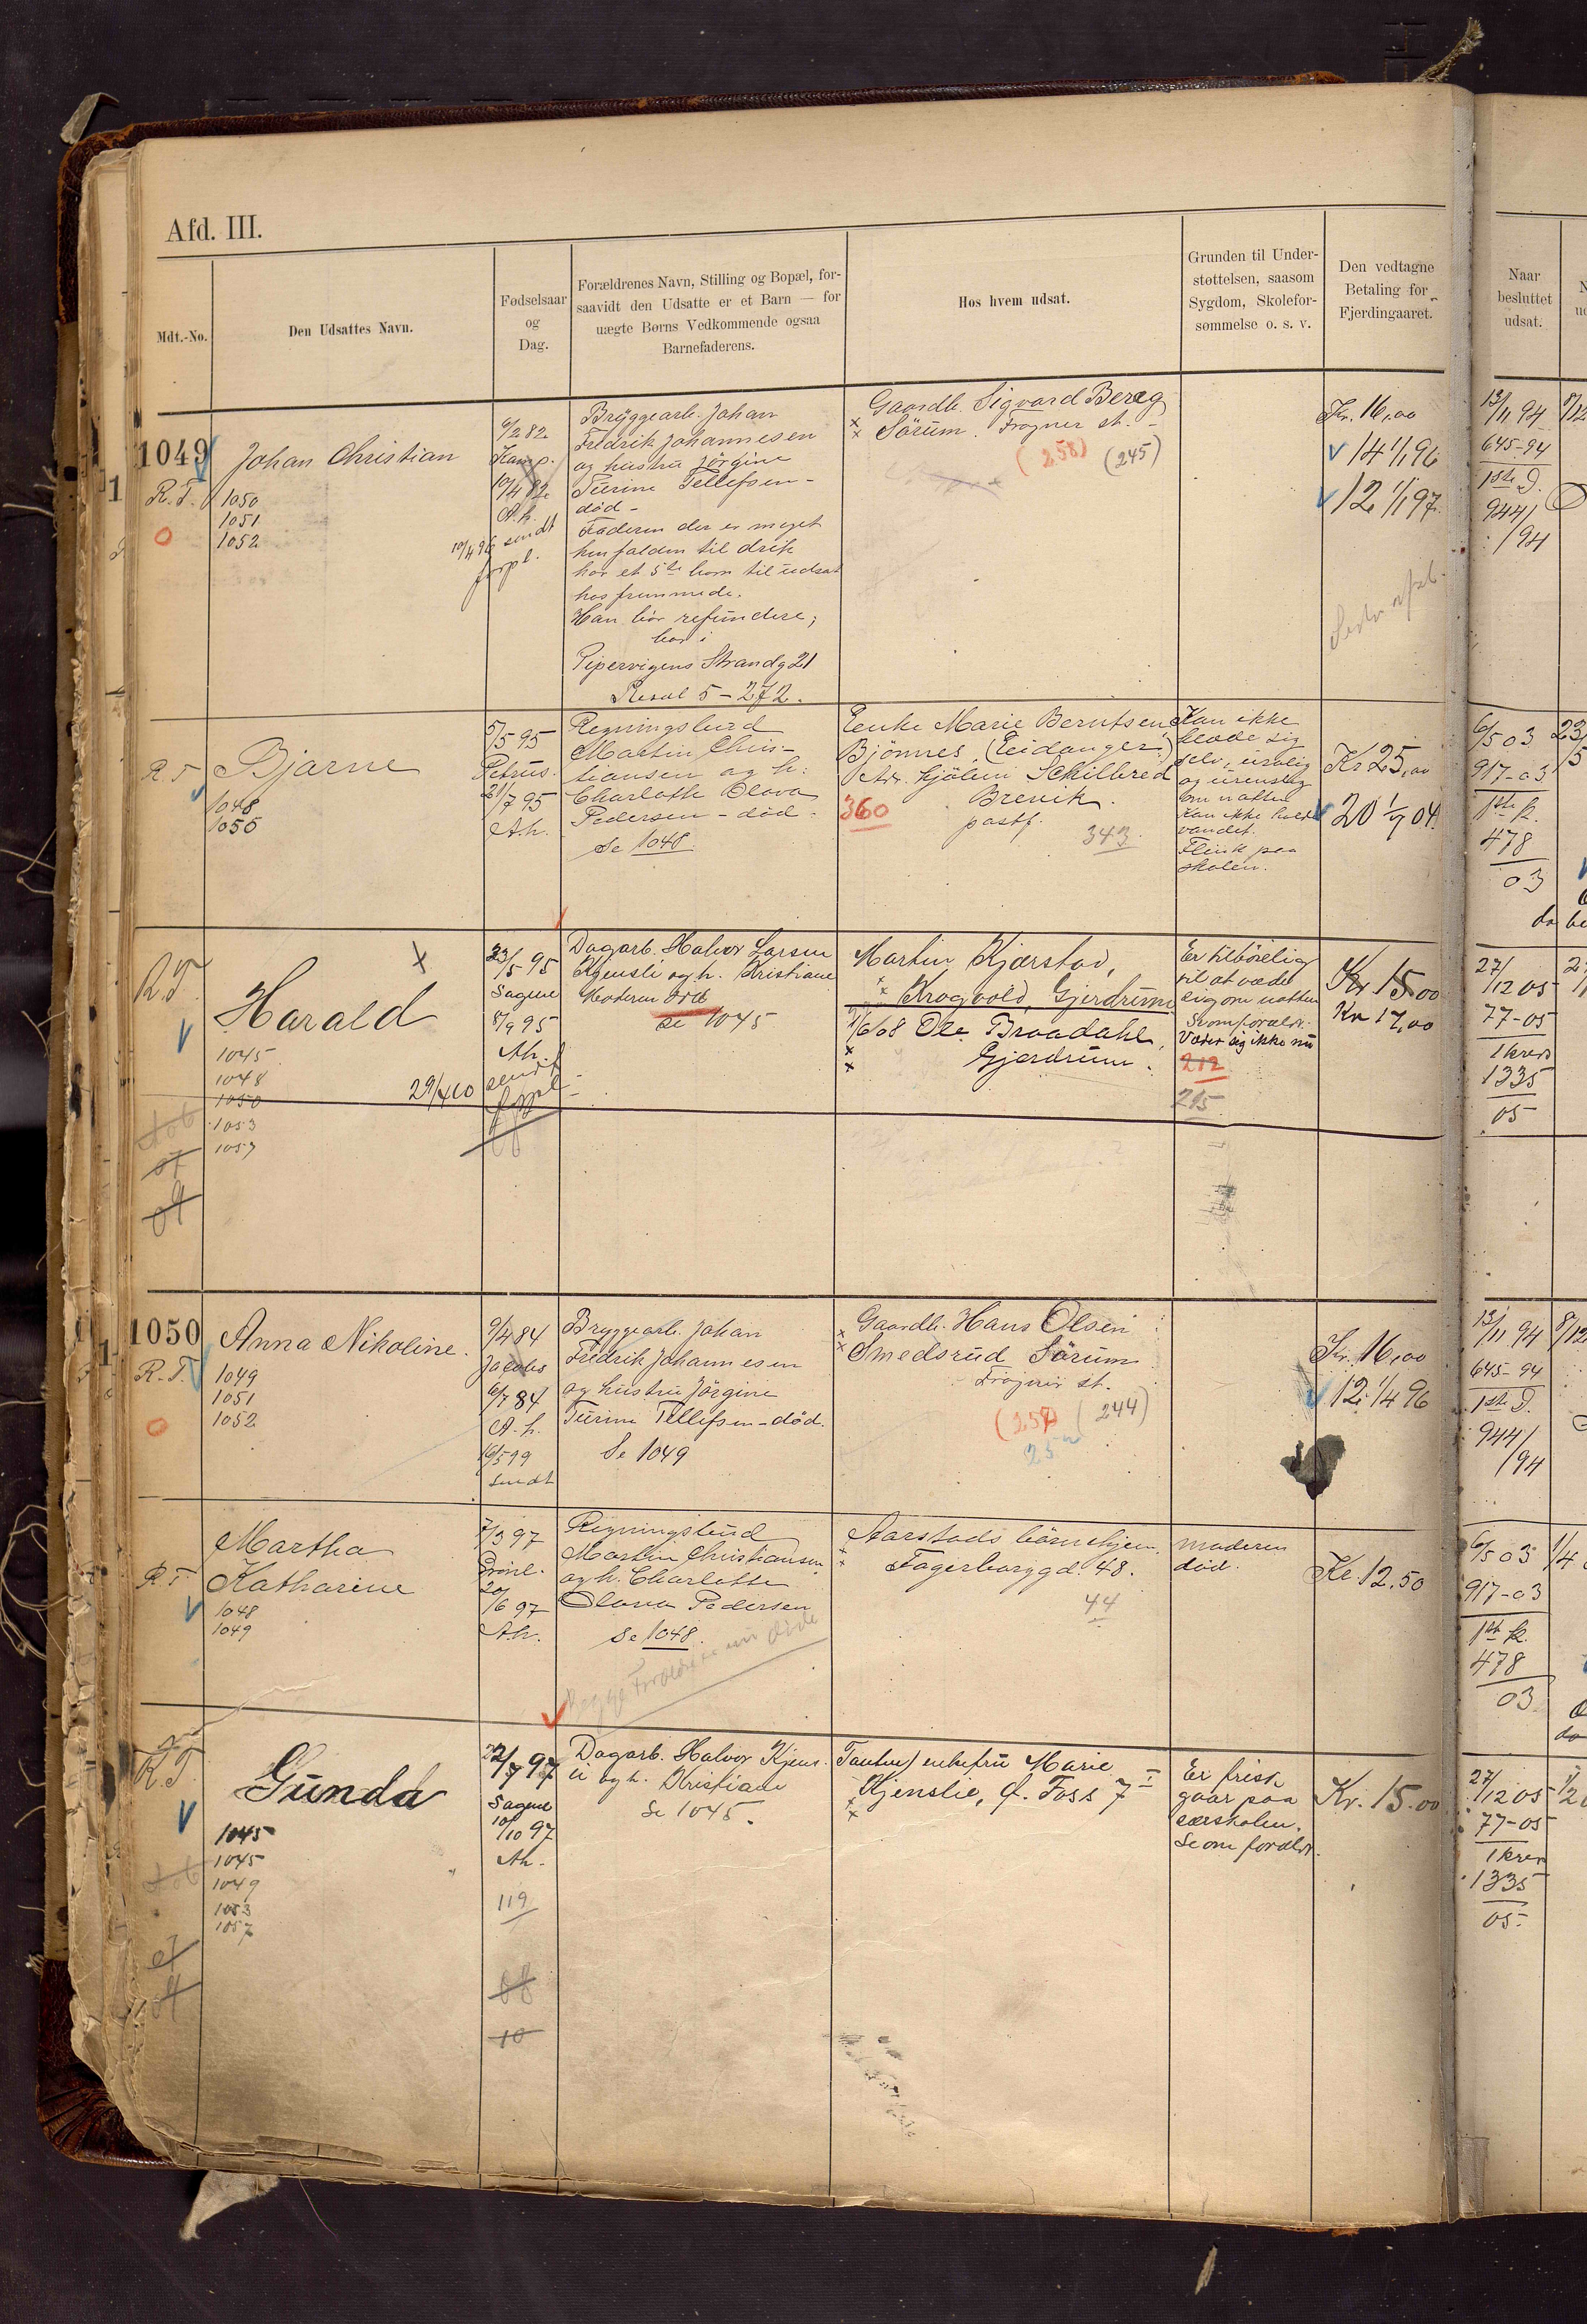 Afd. III.
Mdt.-No.
Den Udsattes Navn.
Fødselsaar
og
Dag.
Forældrenes Navn, Stilling og Bopæl, for-
saavidt den Udsatte er et Barn — for
uægte Børns Vedkommende ogsaa
Barnefaderens.
Hos hvem udsat.
Grunden til Under-
støttelsen, saasom
Sygdom, Skolefor-
sømmelse o. s. v.
Den vedtagne
Betaling for
Fjerdingaaret.
Naar
besluttet
udsat.
1049
R.T.
Johan Christian
1050
1051
1052
6/2 82
Kamp.
10/4 82
A.h.
10/4 96 sendt
forpl.
Bryggearb. Johan
Fredrik Johannesen
og hustru Jörgine
Turine Tellefsen -
död -
Faderen der er meget
henfalden til drik
har et 5te barn til udsat
hos fremmede.
Han bör refundere;
bor i
Pipervigens Strandg 21
Resol 5 - 272.
Gaardb. Sigvard Berg
Sörum. Frogner st. -
(258) (245)
Kr. 16,00
14 1/1 96
12 1/1 97
13/11 94
645-94
1ste D.
944/
/94
R.T.
Bjarne
1048
1050
5/5 95
Petrus.
21/7 95
Ah.
Regningsbud
Martin Chris-
tiansen og h.
Charlotte Olava
Pedersen - död.
Se 1048.
Enke Marie Berntsen
Bjönnes, (Eidanger)
Adr. Hjälm Schilbred
Brevik.
postf.
360
343
Kan ikke
klæde sig
selv, urolig
og urenslig
om natten
Kan ikke holde
vandet.
Flink paa
skolen.
Kr 25,00
20 1/7 04.
6/5 03
917-03
1ste k.
478
03
R.T.
Harald
1045
1048
1050
1053
1057
23/5 95
Sagene
8/9 95
Ah.
29/4 10 sendt
forpl -
Dagarb. Halvor Larsen
Kjensli og h. Kristiane
Moderen död
se 1045
Martin Kjærstad,
Krogvold, Gjerdrum
1/6 08 Ole Braadahl,
Gjerdrum.
Er tilböielig
til at væde
sig om natten
Se om foræld.
Væder sig ikke nu
212
215
Kr 15.00
Kr 17,00
27/12 05
77-05
1 krem
1335
05
1050
R.T.
Anna Nikoline.
1049
1051
1052
9/4 84
Jacobs
6/7 84
A.h.
16/5 99
sendt
Bryggearb. Johan
Fredrik Johannesen
og hustru Jörgine
Turine Tellefsen - död.
Se 1049
Gaardb. Hans Olsen
Smedsrud Sörum
Frogner st.
(257) (244)
Kr. 16,00
12 1/4 96
13/11 94
645-94
1ste D.
944/
/94
R.T.
Martha
Katharine
1048
1049
7/3 97
20/6 97
Ah.
Regningsbud
Martin Christiansen
og h. Charlotte
Olava Pedersen
Se 1048.
Begge Forældre er nu döde
Aarstads börnehjem.
Fagerborggd. 48.
44
moderen
död.
Kr. 12,50
6/5 03
917-03
1ste k.
478
03
R.T.
Gunda
1045
1045
1049
1053
1057
22/7 97
Sagene
10/10 97
Ah.
119
08
10
Dagarb. Halvor Kjens-
li og h. Kristiane
Se 1045.
Tanten) enkefru Marie
Kjenslie, Ö. Foss 7 I
Er frisk
gaar paa
værskolen.
Se om foræld.
Kr. 15.00
27/12 05
77-05
1 krem
1335
05-